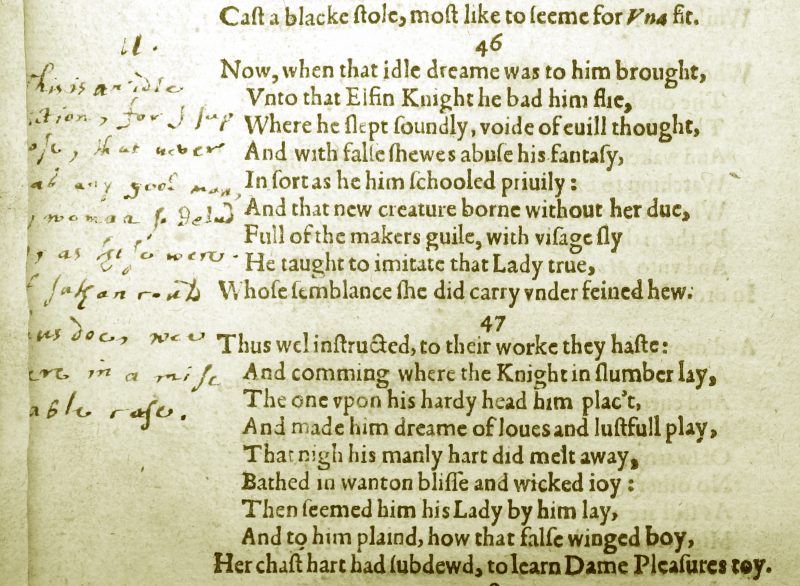 Caſt a blacke ſtole, moſt like to ſeeme for Vna fit.
46
Now, when that idle dreame was to him brought,
Vnto that Elfin Knight he bad him flie,
Where he ſlept ſoundly, voide of euill thought,
And with falſe ſhewes abuſe his fantaſy,
In ſort as he him ſchooled priuily:
And that new creature borne without her due,
Full of the makers guile, with viſage ſly
He taught to imitate that Lady true,
Whoſe ſemblance ſhe did carry vnder feined hew.
47
Thus wel inſtructed, to their worke they haſte:
And comming where the Knight in ſlumber lay,
The one vpon his hardy head him plac't,
And made him dreame of loues and luſtfull play,
That nigh his manly hart did melt away,
Bathed in wanton bliſſe and wicked ioy:
Then ſeemed him his Lady by him lay,
And to him plaind, how that falſe winged boy,
Her chaſt hart had ſubdewd, to learn Dame Pleaſures toy.
this is an idle
ction, for I sup
ose, that never
any good man,
woman so delud
as were
sathan could
us doe, wee
ere in a mise
able case.